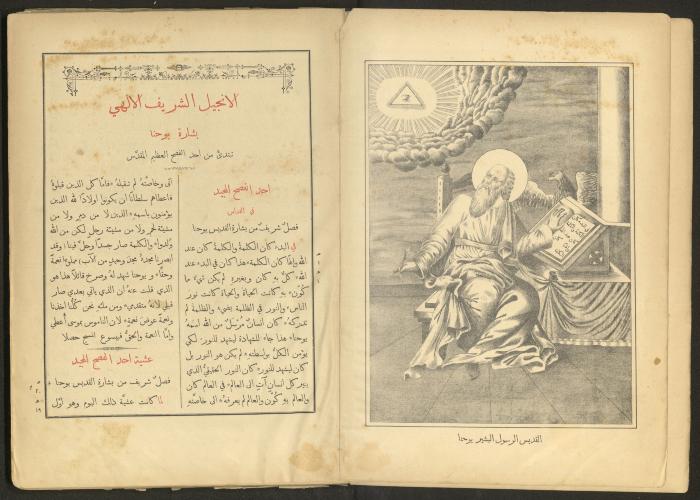 الانجيل الشريف الالهي
بشارة يوحنا
تبتدئ من احد الفصح العظيم المقدّس
احد الفصح المجيد
في القداس
فصلٌ شريفٌ من بشارة القديس يوحنا
في البدء كان الكلمة والكلمة كان عند
الله والهًا كان الكلمة * هذا كان في البدء عند
الله * كلٌّ به كان وبغيره لم يكن شيءٌ مما
كُوّن * به كانت الحياة والحياة كانت نور
الناس * والنور في الظلمة يضيء والظلمة لم
تدركهُ * كان انسانٌ مُرسَلٌ من الله اسمهُ
يوحنا * هذا جاء للشهادة ليشهد للنور * لكي
يؤمن الكلُّ بواسطته * لم يكن هو النور بل
كان ليشهد للنور * كان النور الحقيقيُّ الذي
ينير كل انسانٍ آتٍ الى العالم * في العالم كان
والعالم به كُوّن والعالم لم يعرفهُ * الى خاصّته
اتى وخاصّتهُ لم تقبلهُ * فامّا كل الذين قبلوهُ
فاعطاهم سلطانًا ان يكونوا اولادًا لله الذين
يؤمنون باسمه * الذين لا من دمٍ ولا من
مشيئة لحمٍ ولا من مشيئة رجلٍ لكن من الله
وُلدوا * والكلمة صار جسدًا وحلَّ فينا وقد
ابصرنا مجدهُ مجدَ وحيدٍ من الآب مملوءًا نعمةً
وحقًّا * ويوحنا شهد لهُ وصرخ قائلًا هذا هو
الذي قلت عنهُ ان الذي ياتي بعدي صار
قبلي لانهُ متقدمي * ومن ملئهِ نحن كلُّنا اخذنا
ونعمةً عوض نعمةٍ * لان الناموس بموسى أُعطي
وامّا النعمة والحقُّ فبيسوع المسيح حصلا
عشية احد الفصح المجيد
فصلٌ شريف من بشارة القديس يوحنا
لما كانت عشيّة ذلك اليوم وهو اوّل
القديس الرسول البشير يوحنا